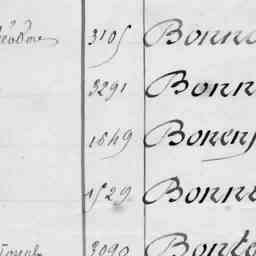 3105 Bonn
3291 Bonn
1649 Bonen
1529 Bonn
3090 Bont